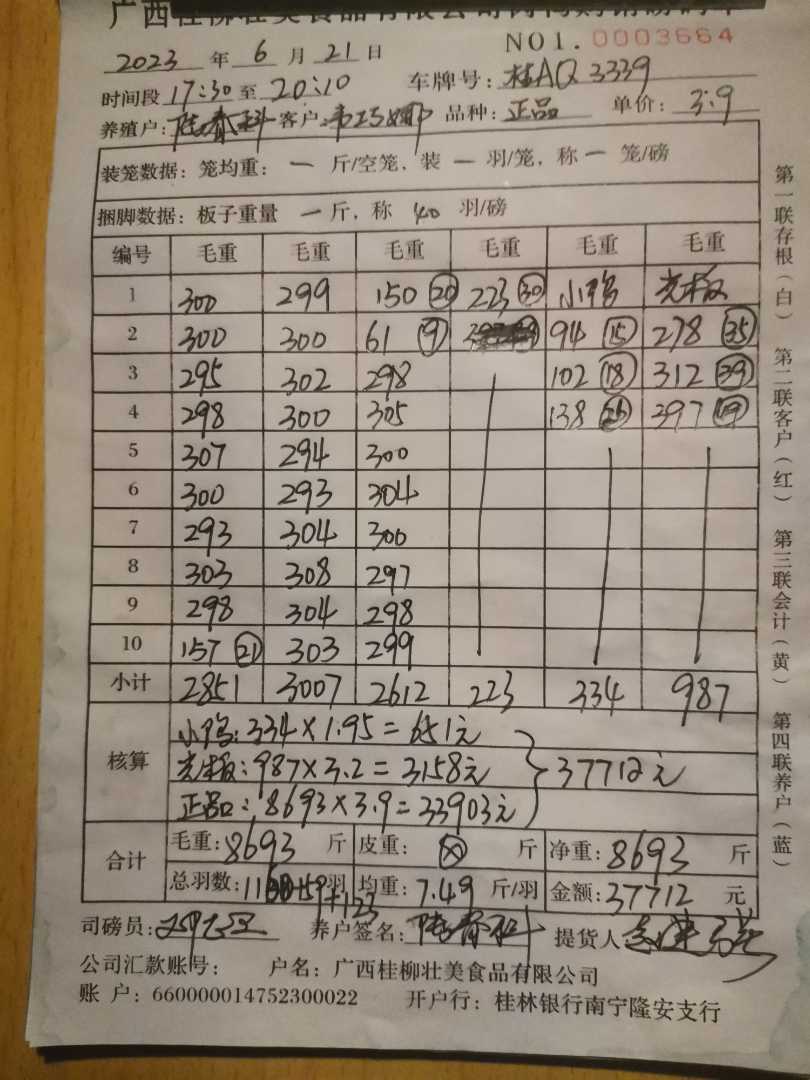 广西桂柳壮美食品有限公司
NO1. 0003664
2023 年 6 月 21 日
时间段 17:30 至 20:10 车牌号: 桂AQ3339
养殖户: 客户: 品种: 正品 单价: 3.9
装笼数据: 笼均重: 一 斤/空笼, 装 一 羽/笼, 称 一 笼/磅
捆脚数据: 板子重量 一 斤, 称 40 羽/磅
编号 毛重 毛重 毛重 毛重 毛重 毛重
1 300 299 150 (20) 223 (30) 小鸡 光板
2 300 300 61 (9) 94 (15) 278 (35)
3 295 302 298 102 (18) 312 (39)
4 298 300 305 138 397 (49)
5 307 294 300
6 300 293 304
7 293 304 300
8 303 308 297
9 298 304 298
10 157 (21) 303 299
小计 2851 3007 2612 223 334 987
核算 小鸡: 334×1.95=651元
光板: 987×3.2=3158元 } 37712元
正品: 8693×3.9=33903元
合计 毛重: 8693 斤 皮重: 斤 净重: 8693 斤
总羽数: 羽 均重: 7.49 斤/羽 金额: 37712 元
+123
司磅员: 养户签名: 提货人
公司汇款账号: 户名: 广西桂柳壮美食品有限公司
账 户: 660000014752300022 开户行: 桂林银行南宁隆安支行
第一联存根(白) 第二联客户(红) 第三联会计(黄) 第四联养户(蓝)